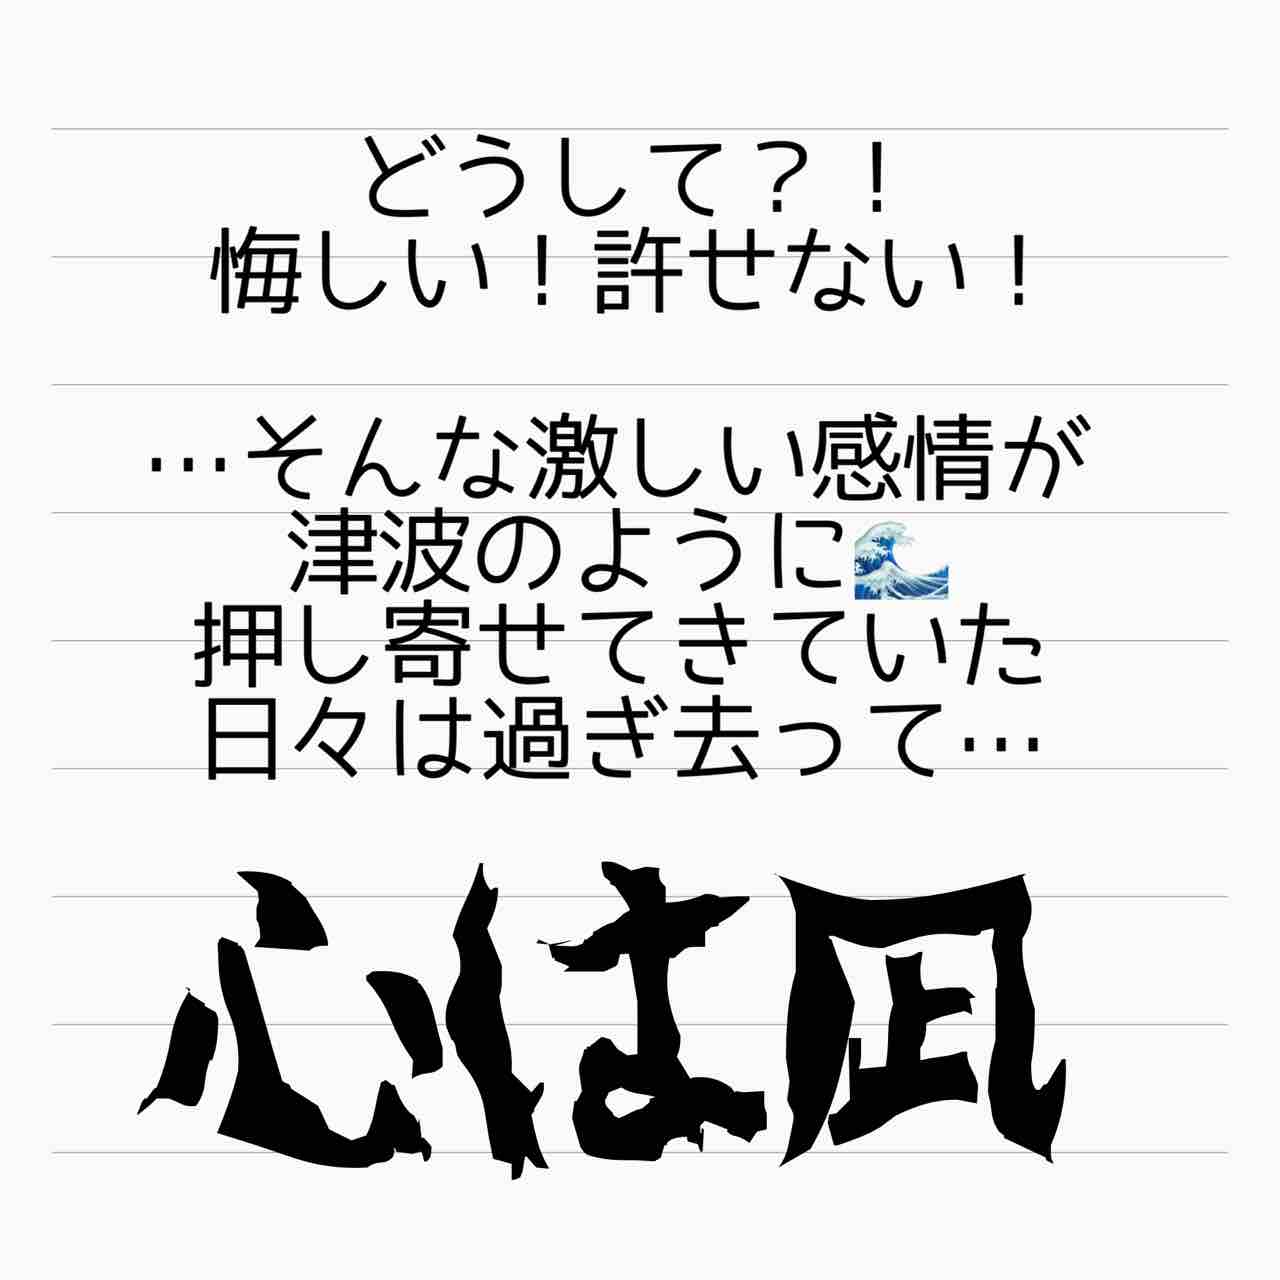 どうして？！
悔しい！許せない！
…そんな激しい感情が
津波のように🌊
押し寄せてきていた
日々は過ぎ去って…
心は凪